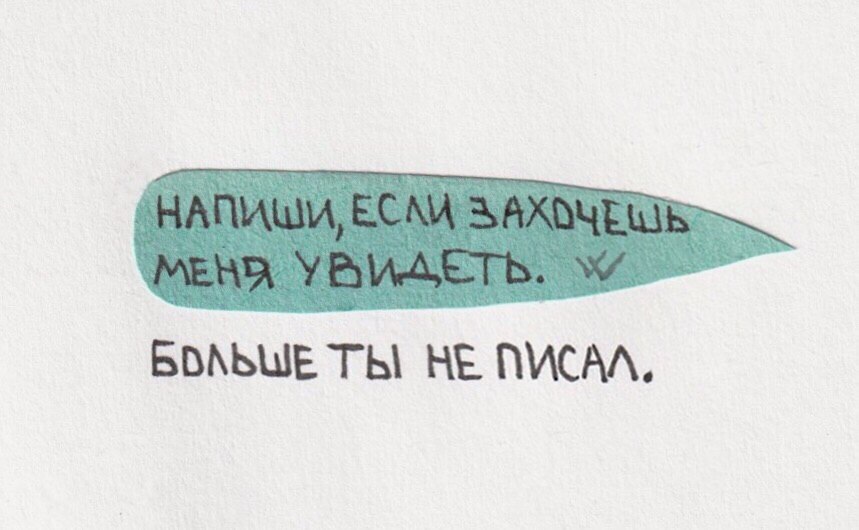 НАПИШИ, ЕСЛИ ЗАХОЧЕШЬ
МЕНЯ УВИДЕТЬ.
БОЛЬШЕ ТЫ НЕ ПИСАЛ.